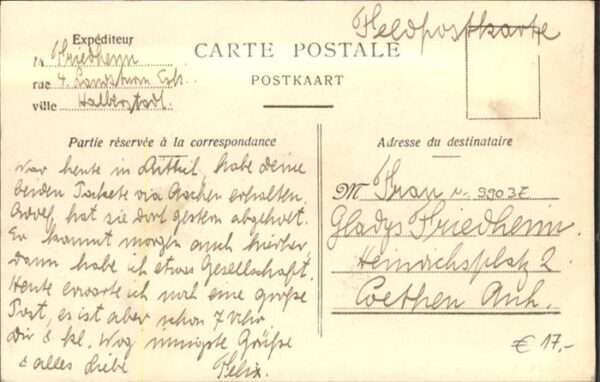 Feldpostkarte
Expéditeur
CARTE POSTALE
POSTKAART
M Friedheim
rue 4. Landsturm Ers.
ville Halberstadt.
Partie réservée à la correspondance
War heute in , habe deine
beiden Packete via Aachen erhalten.
hat sie dort gestern abgeholt.
Er kommt morgen auch hierher
dann habe ich etwas Gesellschaft.
Heute erwarte ich noch eine große
Post, es ist aber schon 7 Uhr.
Dir & kl. innigste Grüße
& alles Liebe Felix.
Adresse du destinataire
M Frau N. 99037
Gladys Friedheim.
Heinrichsplatz 2
Coethen Anh.
€ 17,-